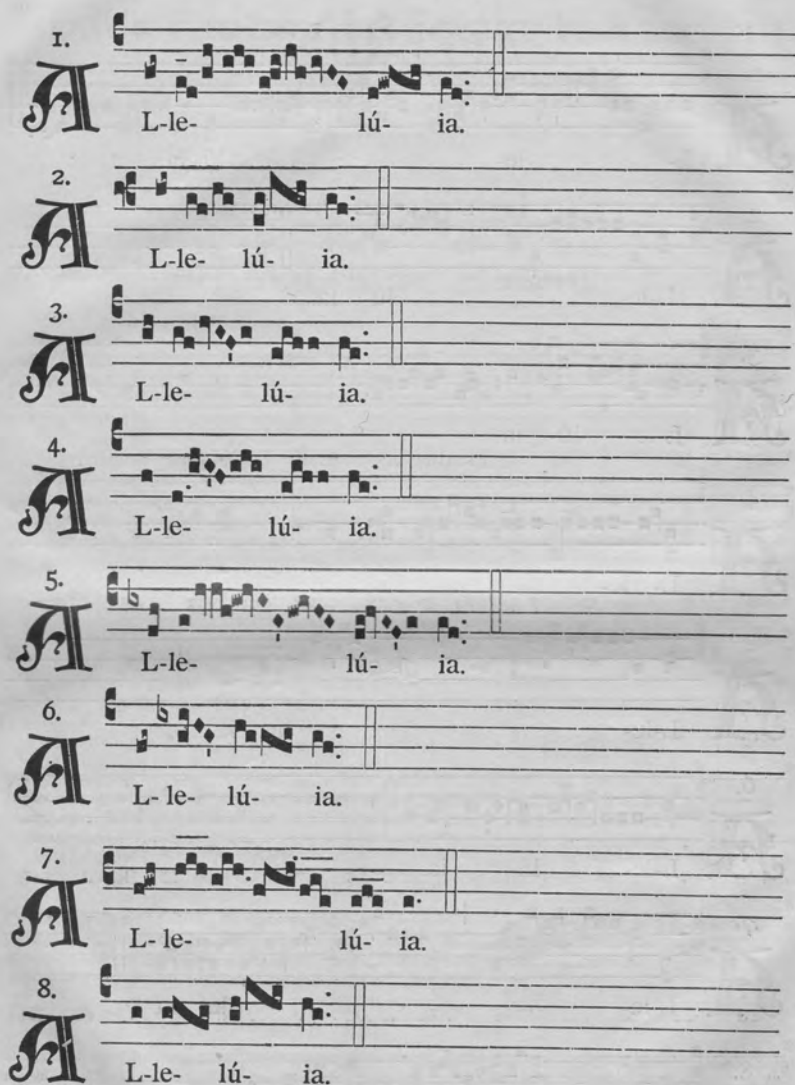 1.
AL-le- lú- ia.
2.
AL-le- lú- ia.
3.
AL-le- lú- ia.
4.
AL-le- lú- ia.
5.
AL-le- lú- ia.
6.
AL- le- lú- ia.
7.
AL- le- lú- ia.
8.
AL-le- lú- ia.